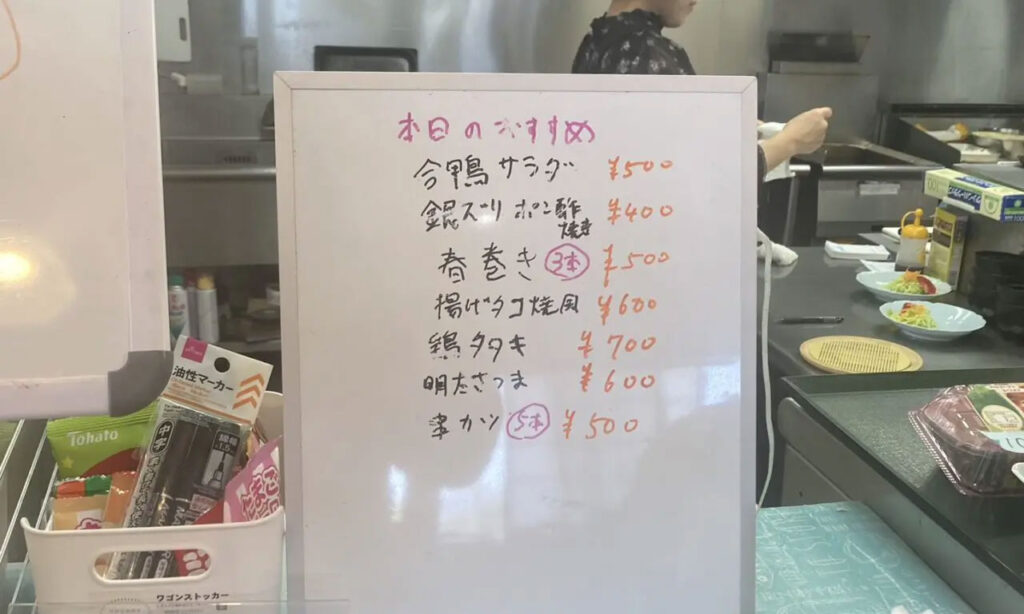 本日のおすすめ
合鴨サラダ ¥500
銀ズリポン酢焼き ¥400
春巻き 3本 ¥500
揚げタコ焼風 ¥600
鶏タタキ ¥700
明太さつま ¥600
串カツ 5本 ¥500
油性マーカー
中字
Tohato
ワゴンストッカー